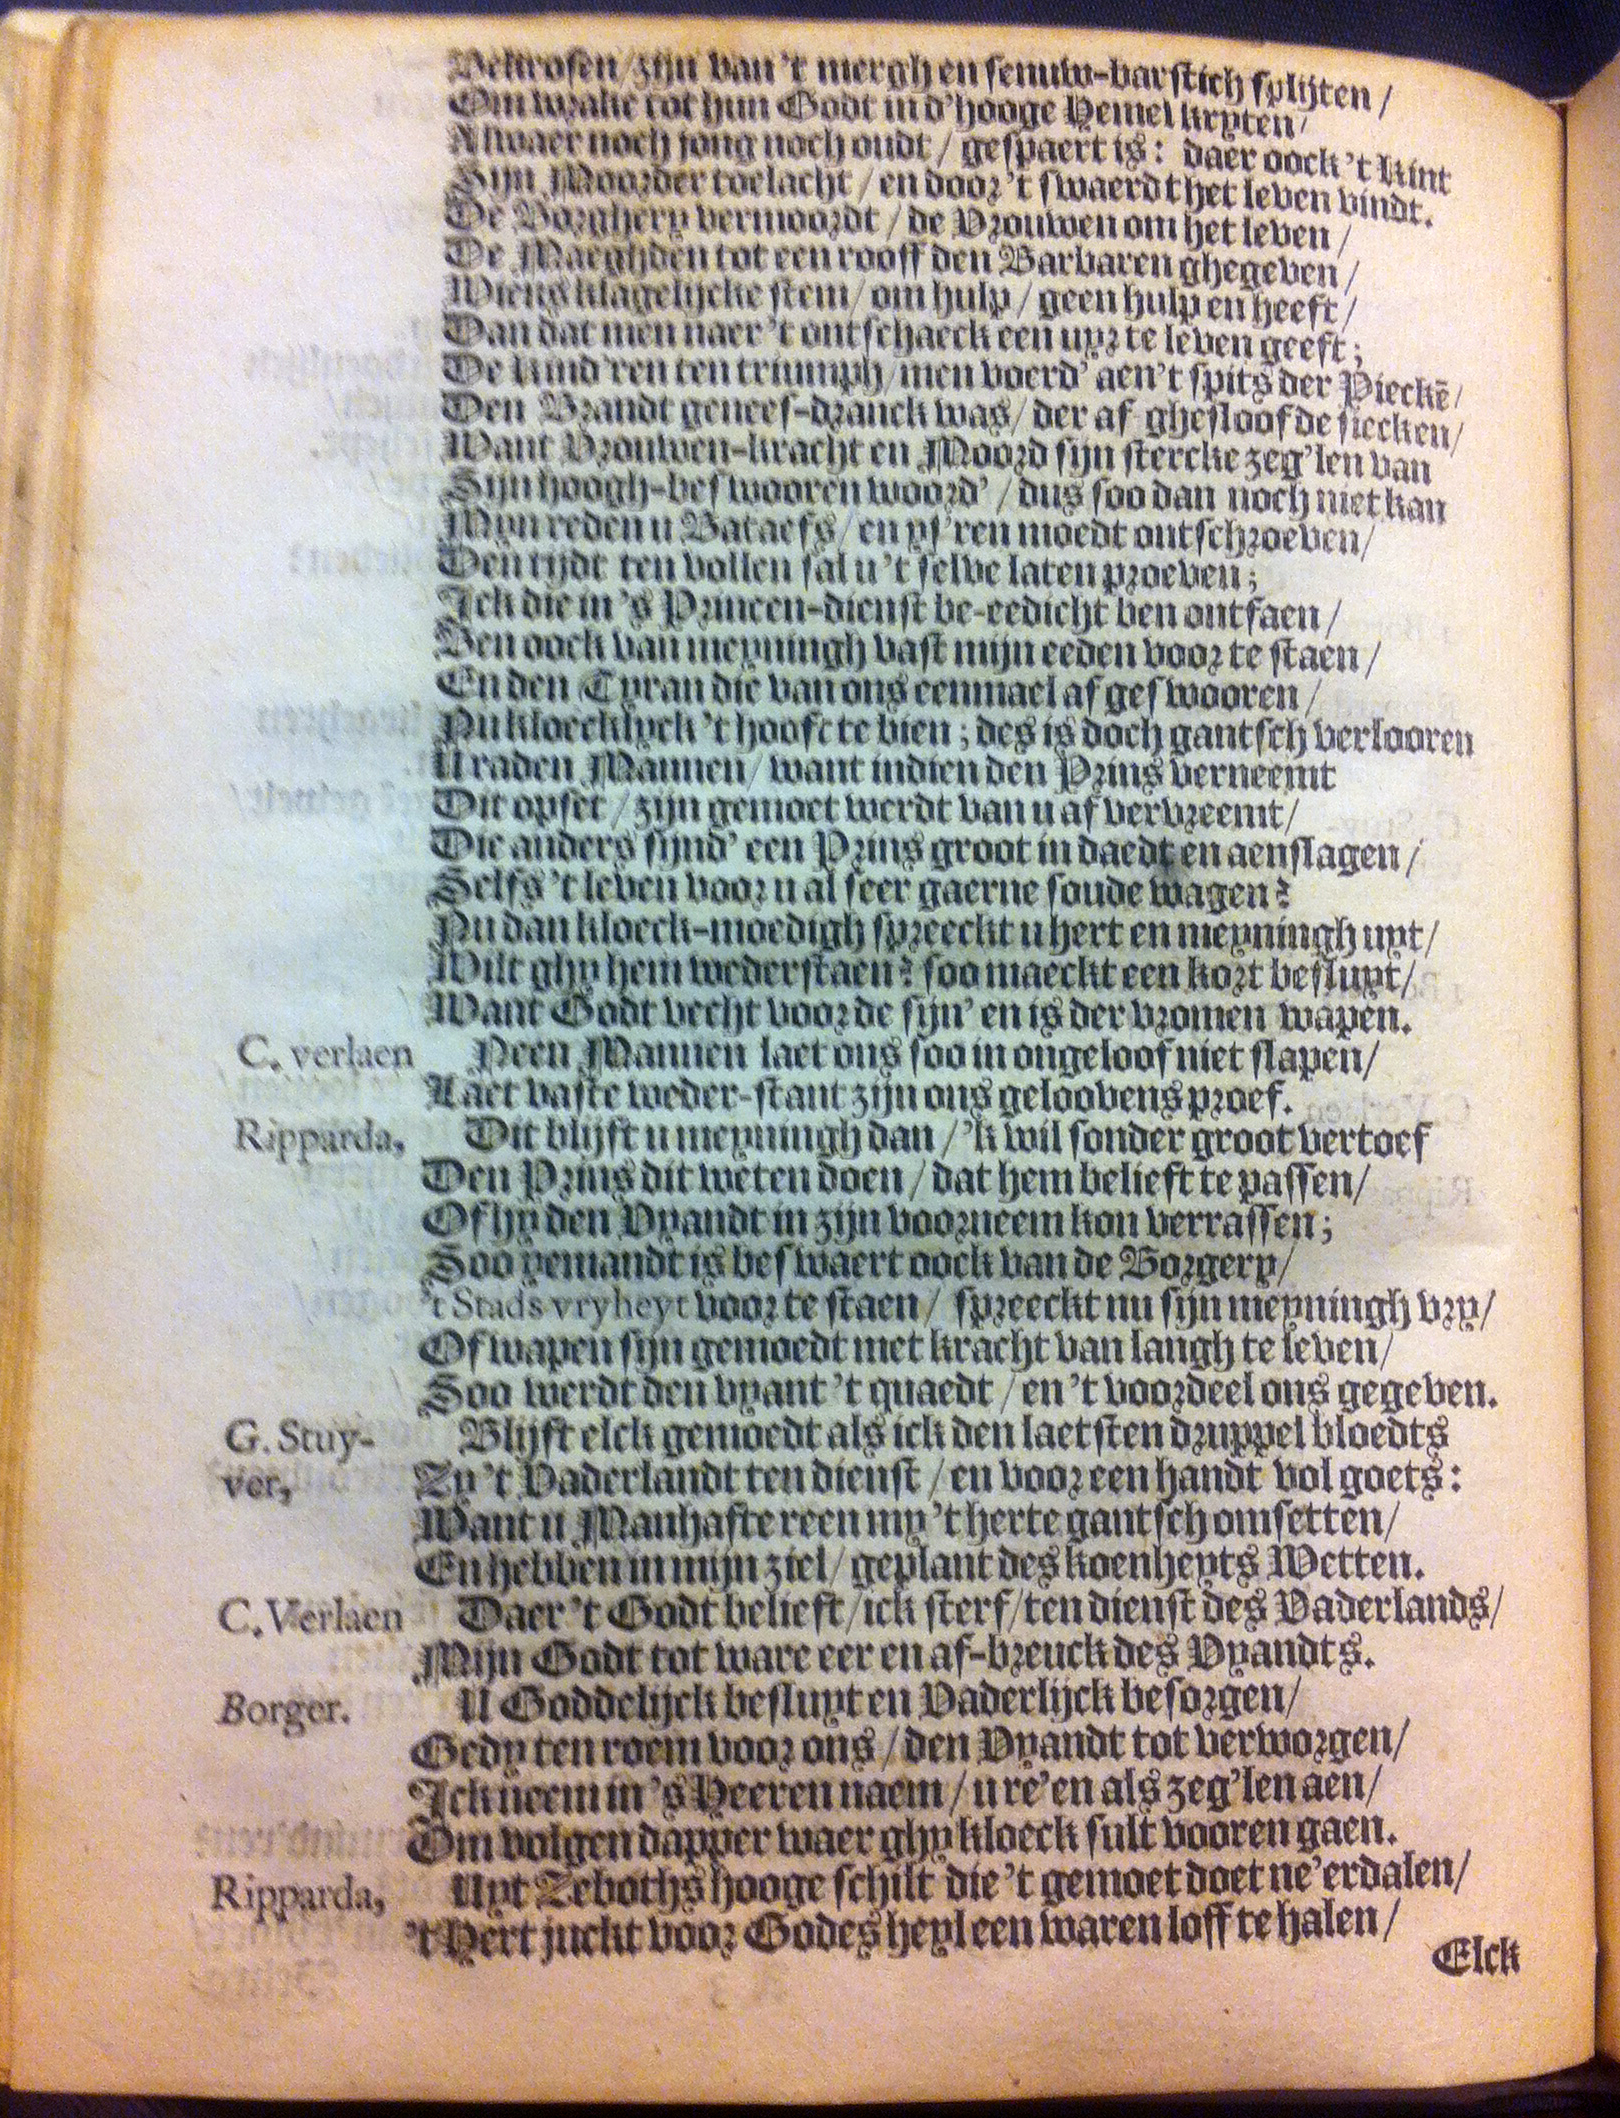 Beknosen/zijn van 't mergh en senuw-barstich splijten/
Om wrake tot hun Godt in d'hooge Hemel kryten/
Alwaer noch jong noch oudt/ gespaert is: daer oock 't kint
Zijn Moorder toelacht/ en door 't swaerdt het leven vindt.
De Borghery vermoordt/ de Vrouwen om het leven/
De Maeghden tot een rooff den Barbaren ghegeven/
Wiens klagelijcke stem/ om hulp/ geen hulp en heeft/
Dan dat men naer 't ontschaeck een uyr te leven geeft;
De kind'ren ten triumph/men voerd' aen't spits der Pieckē/
Den Brandt genees-dranck was/ der af ghesloofde siecken/
Want Vrouwen-kracht en Moord sijn stercke zeg'len van
Zijn hoogh-beswooren woord'/ dus soo dan noch niet kan
Myn reden u Bataefs/ en ys'ren moedt ontschroeven/
Den tijdt ten vollen sal u 't selve laten proeven;
Ick die in 's Princen-dienst be-eedicht ben ontfaen/
Ben oock van meyningh vast mijn eeden voor te staen/
En den Tyran die van ons eenmael afgeswooren/
Nu kloecklyck 't hooft te bien; des is doch gantsch verlooren
U raden Mannen/ want indien den Prins verneemt
Dit opset/ zijn gemoet werdt van u af vervreemt/
Die anders sijnd' een Prins groot in daedt en aenslagen/
Selfs 't leven voor u al seer gaerne soude wagen?
Nu dan kloeck-moedigh spreeckt u hert en meyningh uyt/
Wilt ghy hem wederstaen? soo maeckt een kort besluyt/
Want Godt vecht voor de sijn' en is der vromen wapen.
C. verlaen Neen Mannen laet ons soo in ongeloof niet slapen/
Laet vaste weder-stant zijn ons geloovens proef.
Ripparda, Dit blijft u meyningh dan/'k wil sonder groot vertoef
Den Prins dit weten doen/ dat hem belieft te passen/
Of hy den Vyandt in zijn voorneem kon verrassen;
Soo yemandt is beswaert oock van de Borgery/
't Stads vryheyt voor te staen/ spreeckt nu sijn meyningh vry/
Of wapen sijn gemoedt met kracht van langh te leven/
Soo werdt den vyant 't quaedt/en 't voordeel ons gegeven.
G. Stuy- Blijft elck gemoedt als ick den laetsten druppel bloedts
ver, Zy 't Vaderlandt ten dienst/en voor een handt vol goets:
Want u Manhafte reen my 't herte gantsch omsetten/
En hebben in mijn ziel/ geplant des koenheyts Wetten.
C. Verlaen Daer 't Godt belieft/ick sterf/ten dienst des Vaderlands/
Mijn Godt tot ware eer en af-breuck des Vyandts.
Borger. U Goddelijck besluyt en Vaderlijck besorgen/
Gedy ten roem voor ons/den Vyandt tot verworgen/
Ick neem in 's Heeren naem/ u re'en als zeg'len aen/
Om volgen dapper waer ghy kloeck sult vooren gaen.
Ripparda, Uyt Zeboths hooge schilt die 't gemoet doet ne'erdalen/
't Hert juckt voor Godes heyl een waren loff te halen/
Elck